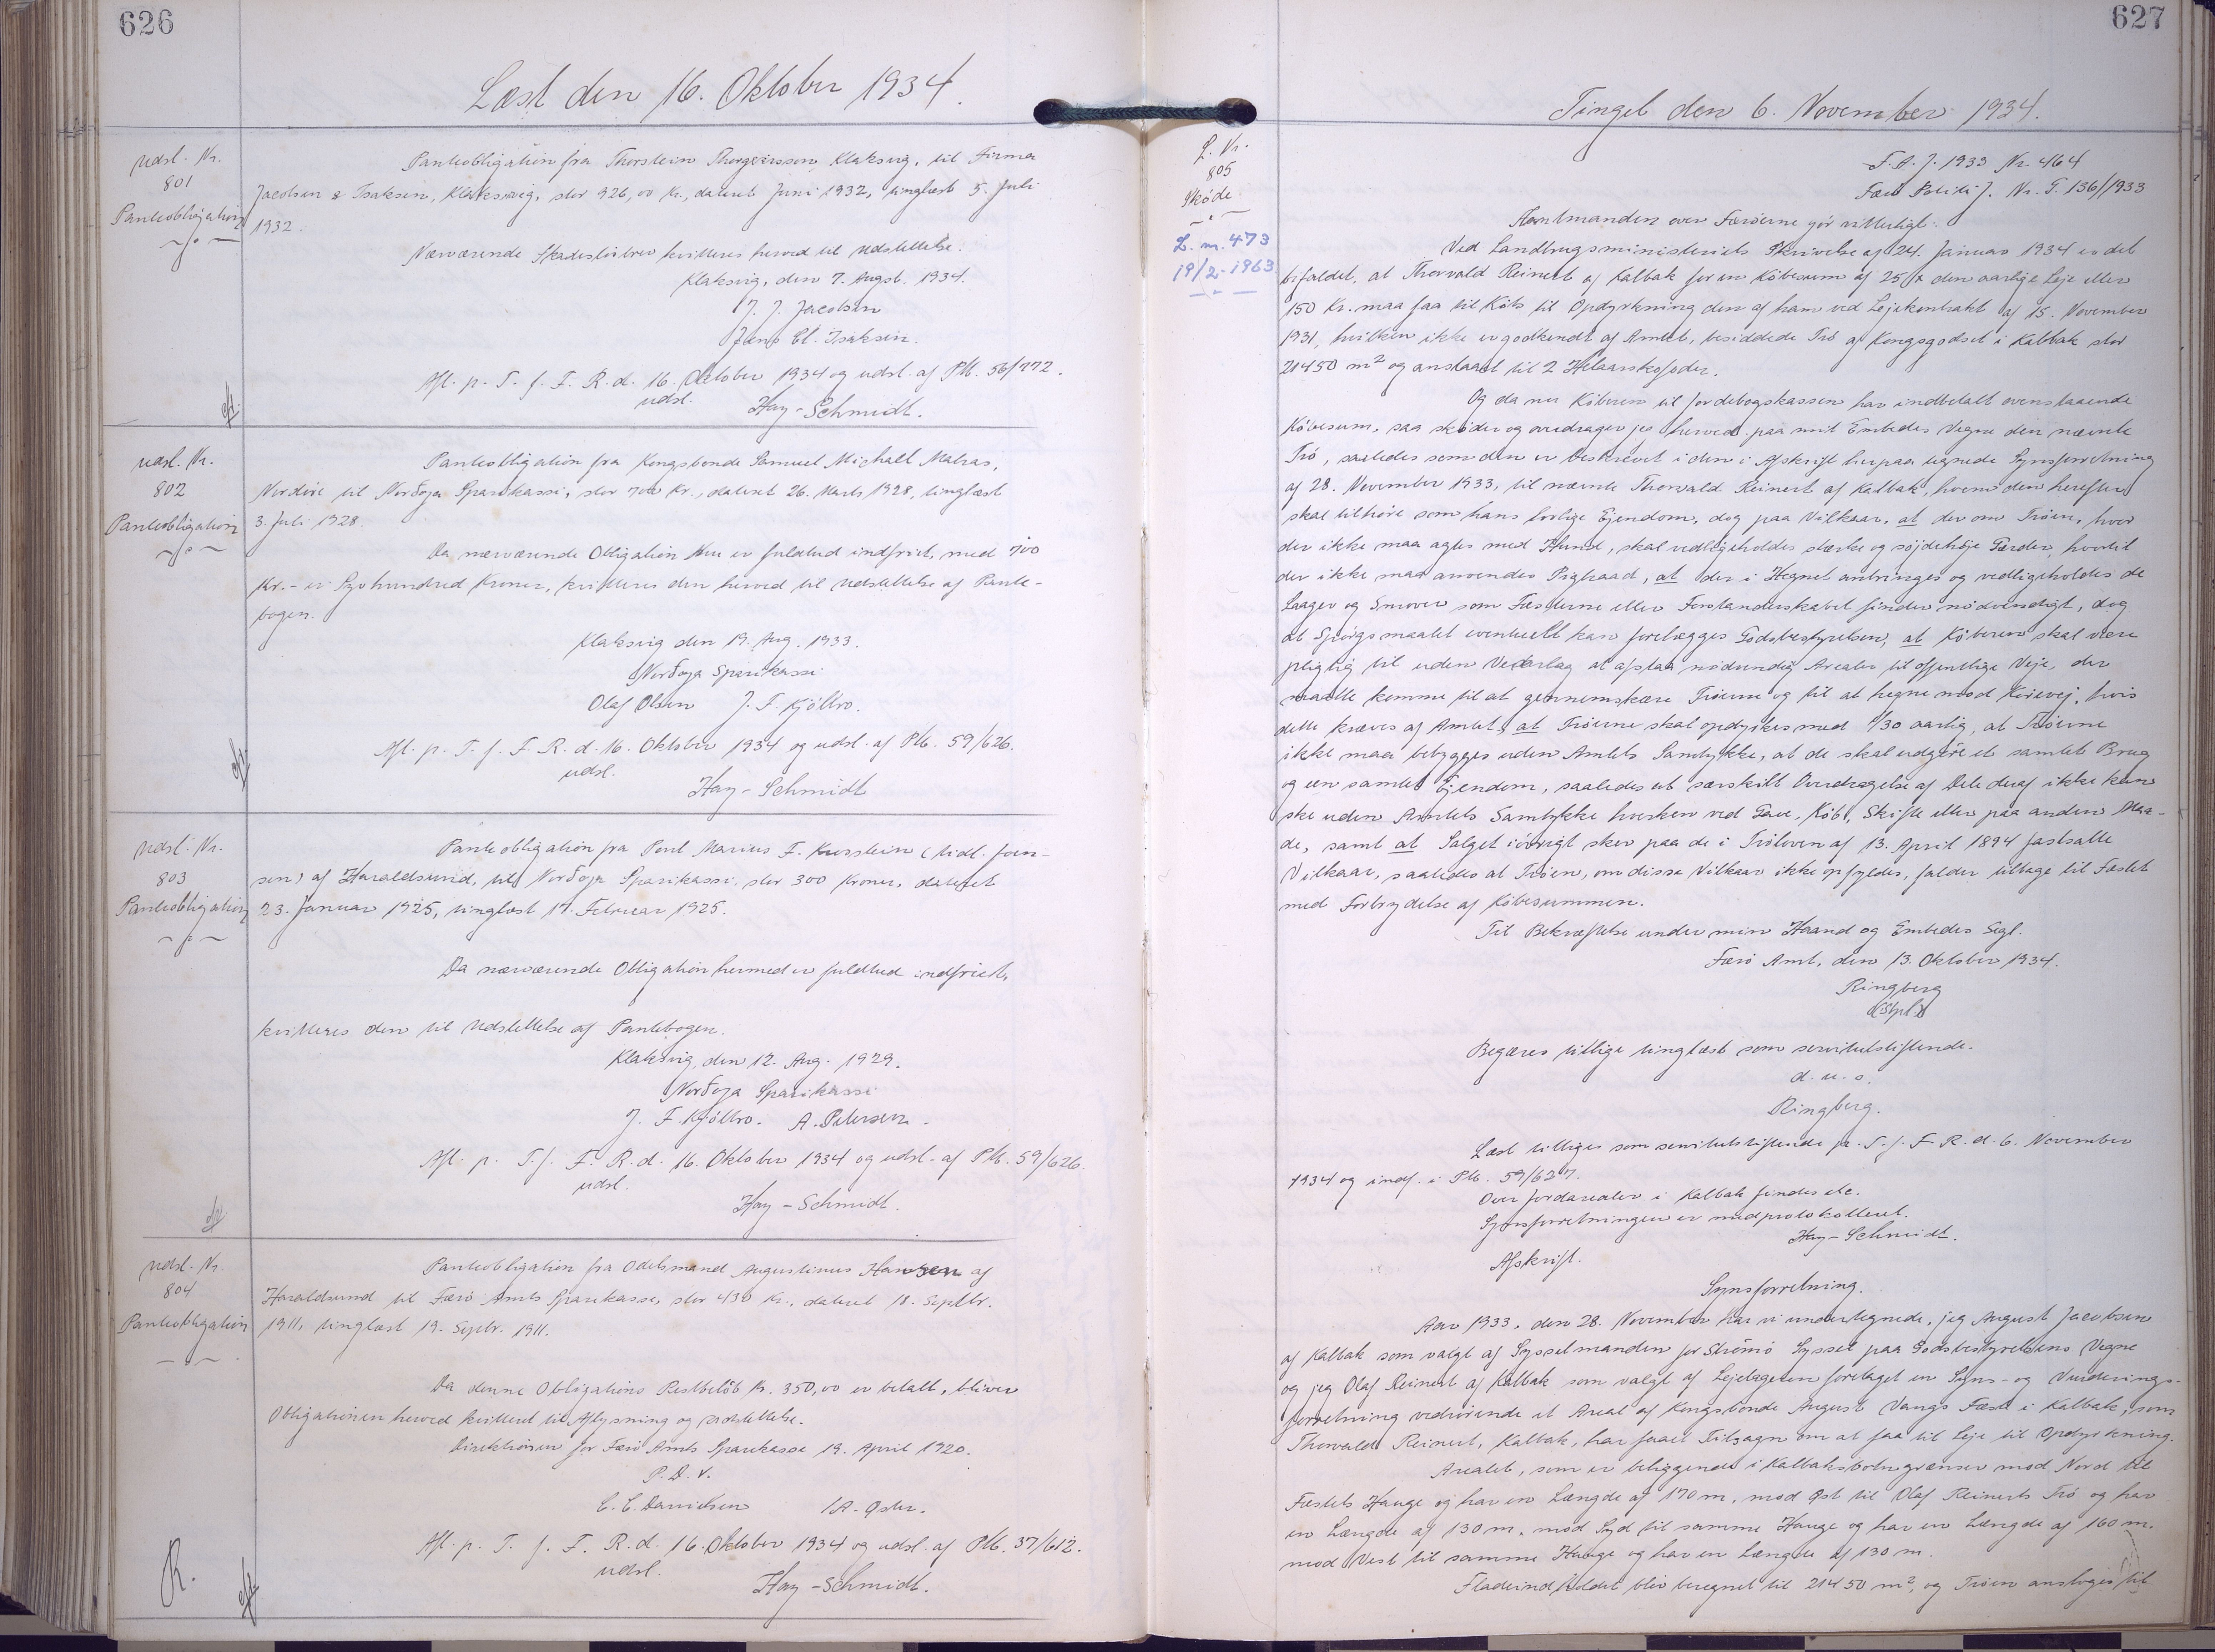 626
Læst den 16. Oktober 1934.
Udsl. Nr.
801
Panteobligation
Panteobligation fra Thorstein Thorgeirsson, Klaksvig, til Firma
Jacobsen & Isaksen, Klaksvig, stor 926,00 Kr., dateret Juni 1932, tinglæst 5. Juli
1932.
Nærværende Skadesløsbrev kvitteres herved til Udslettelse.
Klaksvig, den 7. Augst. 1934.
J. J. Jacobsen
Jens Cl. Isaksen.
Afl. p. T. f. F. R. d. 16. Oktober 1934 og udsl. af Ptb. 56/772.
udsl.
Hay-Schmidt.
Udsl. Nr.
802
Panteobligation
Panteobligation fra Kongsbonde Samuel Michall Matras,
Nordøre til Norðoya Sparikassi, stor 700 Kr., dateret 26. Marts 1928, tinglæst
3. Juli 1928.
Da nærværende Obligation nu er fuldtud indfriet, med 700
Kr. - er Syvhundred Kroner, kvitteres den herved til Udslettelse af Pante-
bogen.
Klaksvig den 19. Aug. 1933.
Norðoya Sparikassi
Olaf Olsen J. F. Kjölbro.
Afl. p. T. f. F. R. d. 16. Oktober 1934 og udsl. af Ptb. 59/626.
udsl.
Hay-Schmidt
Udsl. Nr.
803
Panteobligation
Panteobligation fra Poul Marius F. (tidl. Joen-
sen) af Haraldsund, til Norðoya Sparikassi, stor 300 Kroner, dateret
23. Januar 1925, tinglæst 17. Februar 1925.
Da nærværende Obligation hermed er fuldtud indfriet,
kvitteres den til Udslettelse af Pantebogen.
Klaksvig, den 12. Aug. 1929.
Norðoya Sparikassi
J. F. Kjölbro. A. Petersen.
Afl. p. T. f. F. R. d. 16. Oktober 1934 og udsl. af Ptb. 59/626.
udsl.
Hay-Schmidt.
Udsl. Nr.
804
Panteobligation
Panteobligation fra Odelsmand Augustinus Hansen af
Haraldsund til Færø Amts Sparekasse, stor 430 Kr., dateret 18. Septbr.
1911, tinglæst 19. Septr. 1911.
Da denne Obligations Restbeløb Kr. 350,00 er betalt, bliver
Obligationen herved kvitteret til Aflysning og Udslettelse.
Direktionen for Færø Amts Sparekasse 19. April 1920.
P. D. V.
C. C. Danielsen
Afl. p. T. f. F. R. d. 16. Oktober 1934 og udsl. af Ptb. 37/612.
udsl.
Hay-Schmidt.
R.
627
Tinget den 6. November 1934.
L. Nr.
805
Skøde
L. nr. 473
19/2-1963
F. A. J. 1933 Nr. 464
Færø Politi J. Nr. T. 136/1933
Amtmanden over Færøerne gør vitterligt:
Ved Landbrugsministeriets Skrivelse af 24. Januar 1934 er det
bifaldet, at Thorvald Reinert af Kalbak for en Købesum af 25 x den aarlige Leje eller
150 Kr. maa faa til Køb til Opdyrkning den af ham ved Lejekontrakt af 15. November
1931, hvilken ikke er godkendt af Amtet, besiddede Trö af Kongsgodset i Kalbak stor
21450 m² og anslaaet til 2 Helaarskofoder.
Og da nu Köberen til Jordebogskassen har indbetalt ovenstaaende
Köbesum, saa skøder og overdrager jeg herved paa mit Embedes Vegne den nævnte
Trö, saaledes som den er beskrevet i den i Afskrift herpaa tegnede Synsforretning
af 28. November 1933, til nævnte Thorvald Reinert af Kalbak, hvem den herefter
skal tilhøre som hans lovlige Ejendom, dog paa Vilkaar, at der om Tröen, hvor
der ikke maa agtes med Hund, skal vedligeholdes stærke og höjdehöje Gærder, hvortil
der ikke maa anvendes Pigtraad, at der i Hegnet anbringes og vedligeholdes de
Laager og Smover som Fæsterne eller Forstanderskabet finder nødvendigt, dog
at Spörgsmaalet eventuelt kan forelægges Godsbestyrelsen, at Köberen skal være
pligtig til uden Vederlag at afstaa nødvendig Arealer til offentlige Veje, der
maatte komme til at gennemskære Tröerne og til at hegne mod Kørevej, hvis
dette kræves af Amtet, at Tröerne skal opdyrkes med 1/30 aarlig, at Tröerne
ikke maa bebygges uden Amtets Samtykke, at de skal udgøre et samlet Brug
og een samlet Ejendom, saaledes at særskilt Overdragelse af Dele deraf ikke kan
ske uden Amtets Samtykke hverken ved Gave, Köb, Skifte eller paa anden Maa-
de, samt at Salget iøvrigt sker paa de i Tröloven af 13. April 1894 fastsatte
Vilkaar, saaledes at Tröen, om disse Vilkaar ikke opfyldes, falder tilbage til Fæstet
med Forbrydelse af Köbesummen.
Til Bekræftelse under min Haand og Embedes Segl.
Færö Amt, den 13. Oktober 1934.
Ringberg
Begæres tillige tinglæst som servitutstiftende.
d. u. s.
Ringberg.
Læst tilliges som servitutstiftende p. T. f. F. R. d. 6. November
1934 og indf. i Ptb. 59/627.
Over Jordarealer i Kalbak findes etc.
Synsforretningen er medprotokolleret.
Hay-Schmidt.
Afskrift.
Synsforretning.
Aar 1933, den 28. November har vi undertegnede, jeg August Jacobsen
af Kalbak som valgt af Sysselmanden for Strömö Syssel paa Godsbestyrelsens Vegne
og jeg Olaf Reinert af Kalbak som valgt af Lejetageren foretaget en Syns- og Vurderings-
forretning vedrørende et Areal af Kongsbonde August Vangs Fæste i Kalbak, som
Thorvald Reinert, Kalbak, har faaet Tilsagn om at faa til Leje til Opdyrkning.
Arealet, som er beliggende i Kalbaksbotn grænser mod Nord til
Fæstets Hauge og har en Længde af 170 m, mod Øst til Olaf Reinerts Trö og har
en Længde af 130 m, mod Syd til samme Hauge og har en Længde af 160 m.
mod Vest til samme Hauge og har en Længde af 130 m.
Fladeindholdet blev beregnet til 21450 m², og Tröen ansloges til